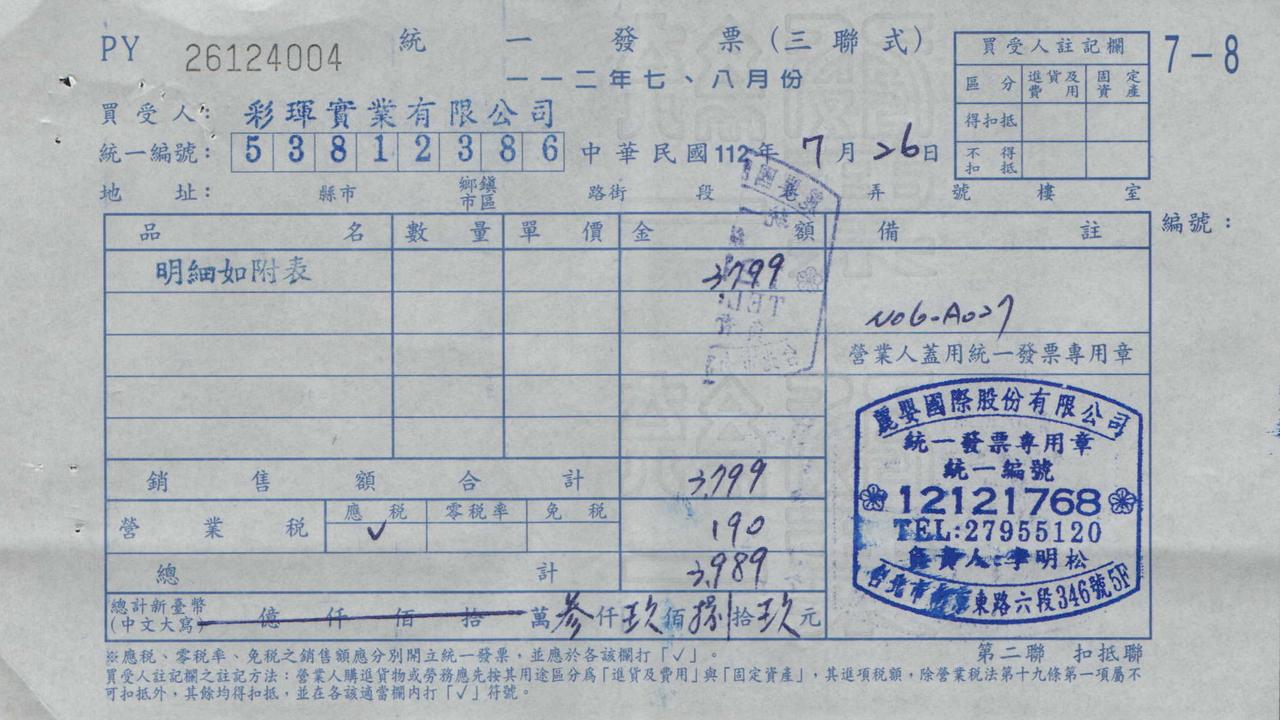 PY 26124004 統一發票(三聯式)
一一二年七、八月份
7-8
買受人註記欄
區分 進貨及費用 固定資產
得扣抵
不得扣抵
買受人: 彩琿實業有限公司
統一編號: 53812386 中華民國112年7月26日
地址: 縣市 鄉鎮市區 路街 段 巷 弄 號 樓 室
編號:
品名 數量 單價 金額 備註
明細如附表 3,799
N06-A027
營業人蓋用統一發票專用章
銷售額合計 3,799
營業稅 應稅 零稅率 免稅
✓ 190
總計 3,989
總計新臺幣
(中文大寫) 億 仟 佰 拾 萬參仟玖佰捌拾玖元
麗嬰國際股份有限公司
統一發票專用章
統一編號
12121768
TEL:27955120
負責人:李明松
台北市南京東路六段346號5F
※應稅、零稅率、免稅之銷售額應分別開立統一發票,並應於各該欄打「✓」。
第二聯 扣抵聯
買受人註記欄之註記方法:營業人購進貨物或勞務應先按其用途區分為「進貨及費用」與「固定資產」,其進項稅額,除營業稅法第十九條第一項屬不
可扣抵外,其餘均得扣抵,並在各該適當欄內打「✓」符號。